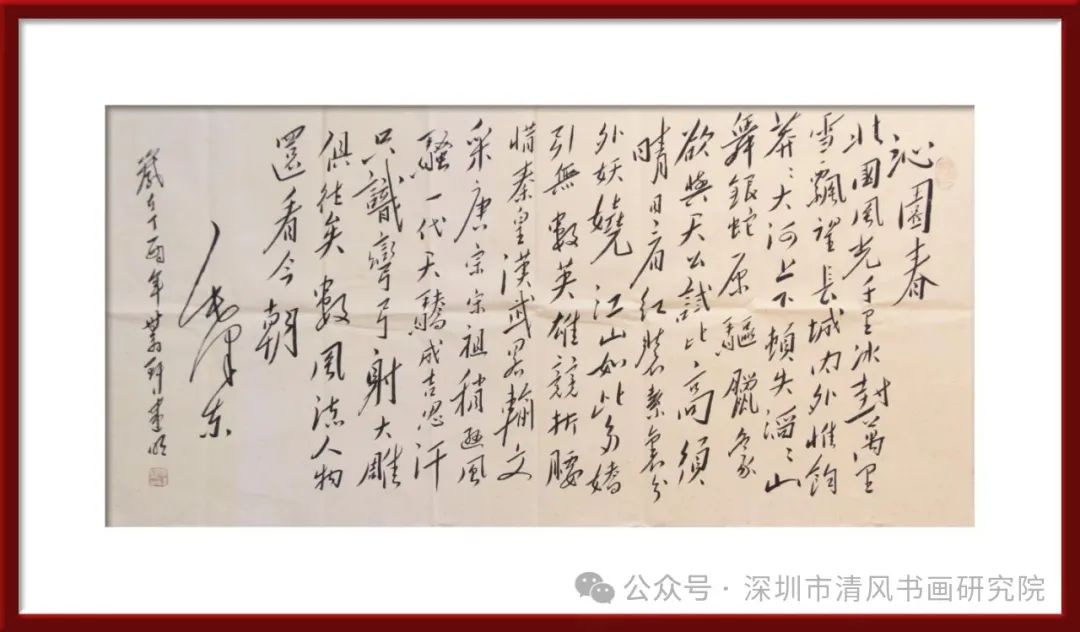 沁園春
北國風光千里冰封萬里
雪飄望長城内外惟餘
莽〻大河上下頓失滔〻山
舞銀蛇原驅臘象
欲與天公試比高須
晴日看紅裝素裹分
外妖嬈江山如此多嬌
引無數英雄競折腰
惜秦皇漢武畧輸文
采唐宗宋祖稍遜風
騷一代天驕成吉思汗
只識彎弓射大雕
俱往矣數風流人物
還看今朝
毛澤东
歲在丁酉年
公众号·深圳市清风书画研究院